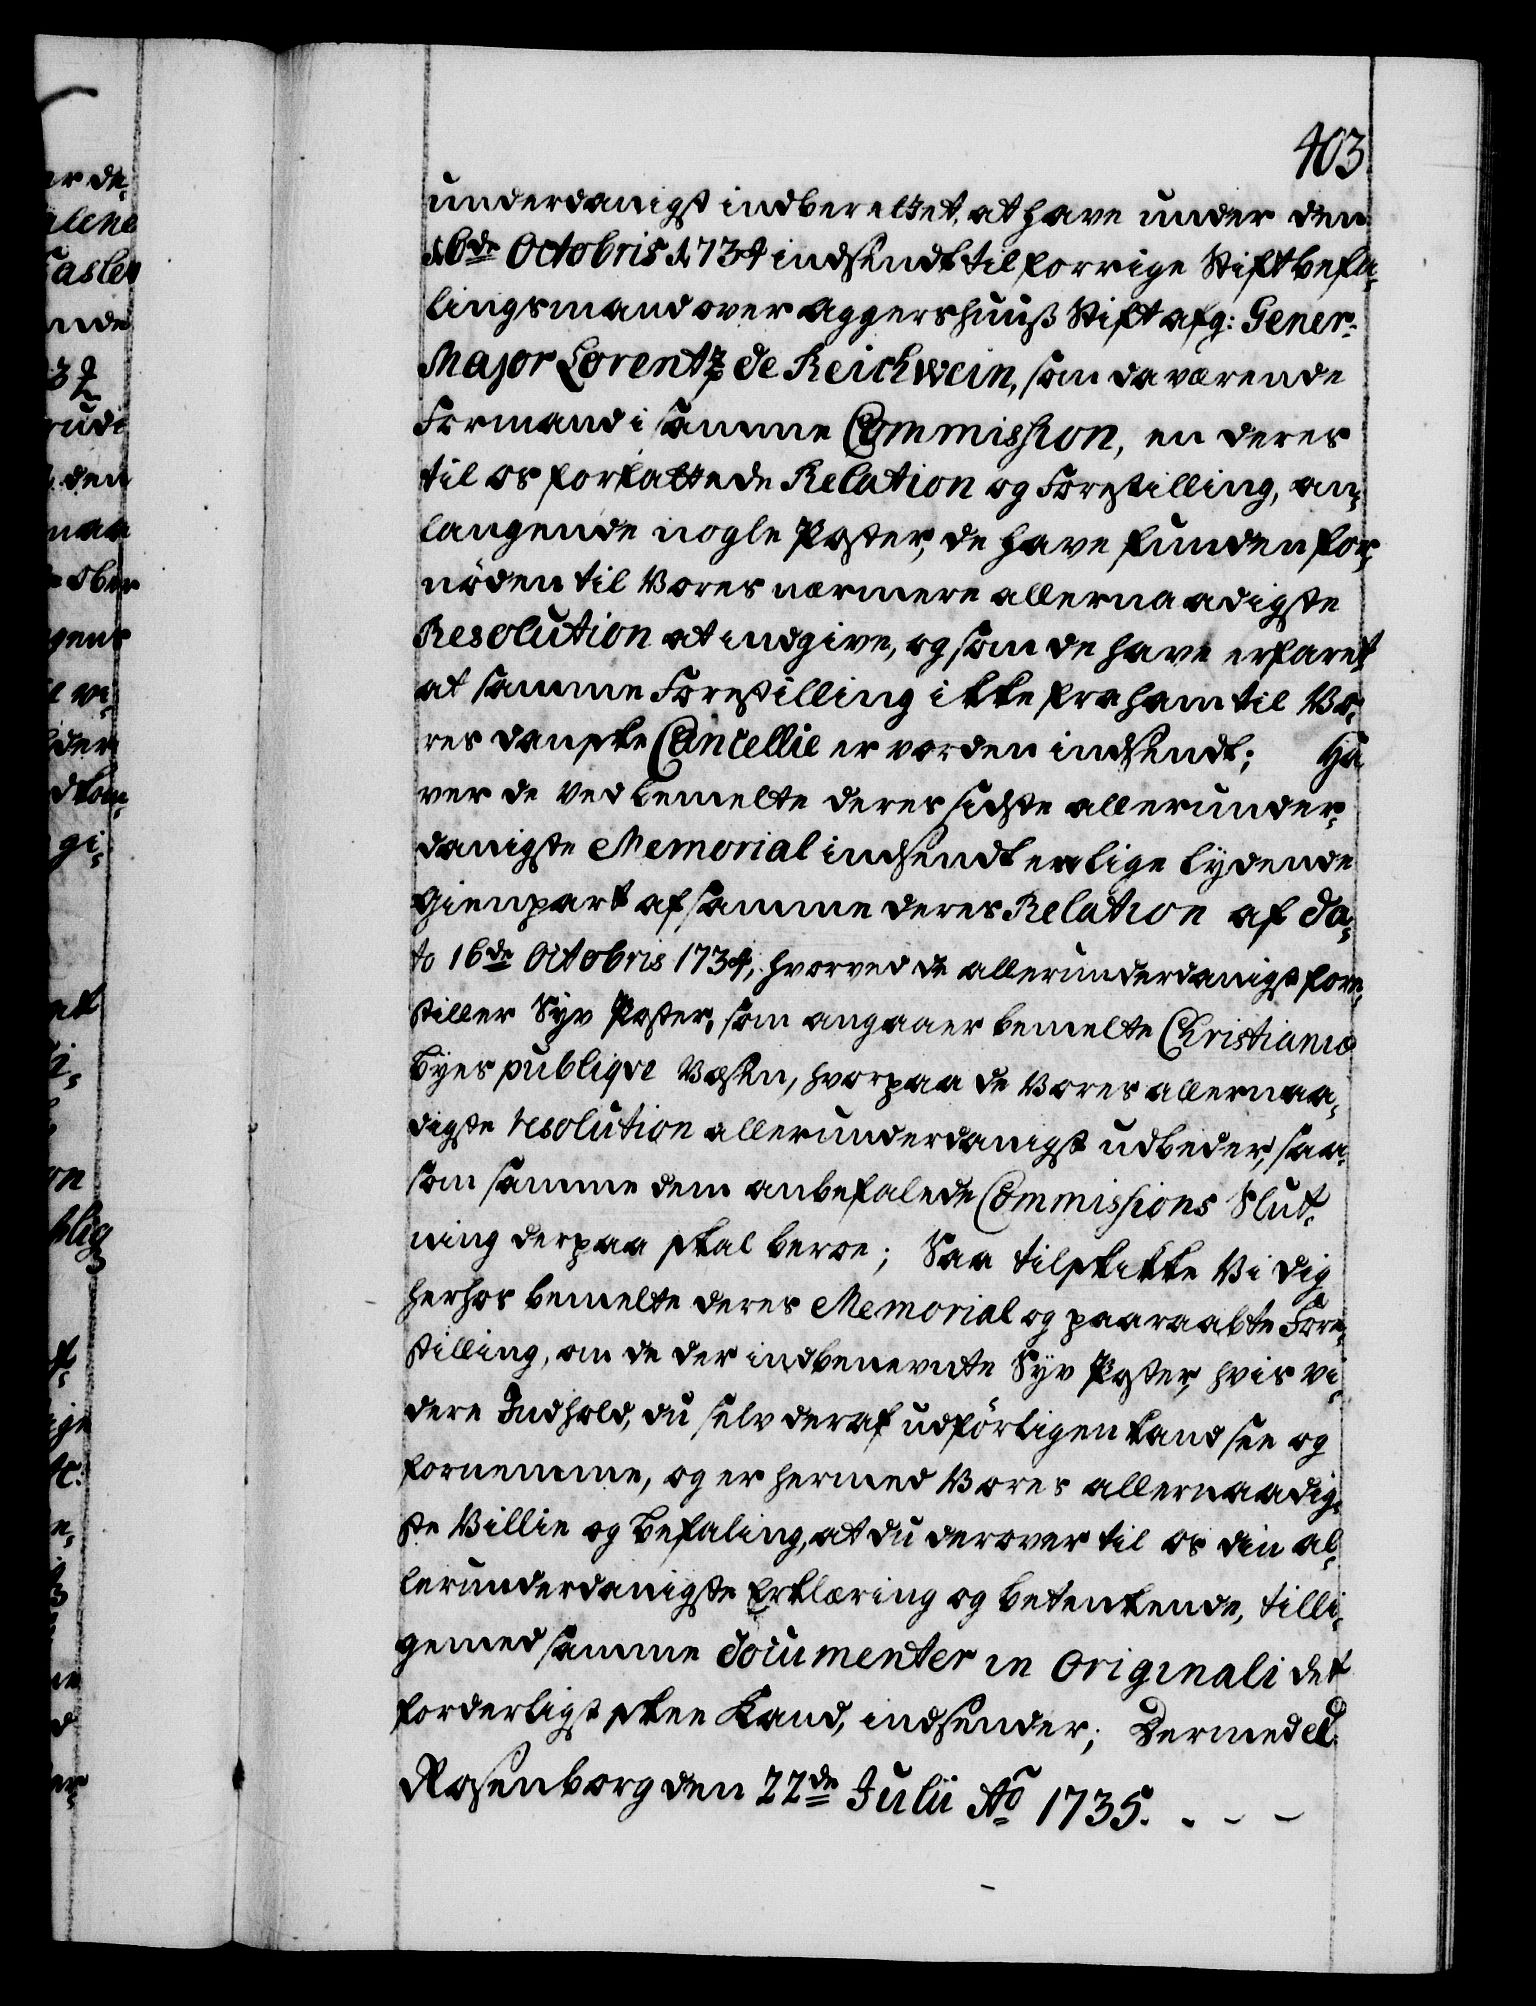 403
underdanigst indberettet, at have under den
16de Octobris 1734 indsendt til forrige Stiftbefa-
lingsmand over Aggershuus Stift afg: Gener-
Major Lorentz de Reichwein, som daværende
Formand i samme Commission, en deres
til os forfattede Relation og Forestilling, an-
langende nogle Poster, de have funden for-
nöden til Vores nærmere allernaadigste
Resolution at indgive, og som de have erfaret
at samme Forestilling ikke fra ham til Vo-
res danske Cancellie er vorden indsendt; Ha
ver de ved bemelte deres sidste allerunder-
danigste Memorial indsendt en lige lydende
Gienpart af samme deres Relation af Da-
to 16de Octobris 1734, hvorved de allerunderdanigst fore-
stiller Syv Poster, som angaaer bemelte Christianiæ
Byes publiqve Væsen, hvorpaa de Vores allernaa-
digste resolution allerunderdanigst udbeder, saa-
som samme dem anbefalede Commissions Slut-
ning derpaa skal beroe; Saa tilskikke Vi dig
herhos bemelte deres Memorial og paaraabte Fore-
stilling, om de der indbenevnte Syv Poster, hvis vi-
dere Indhold, du selv deraf udförligen kand see og
fornemme, og er hermed Vores allernaadig-
ste Villie og Befaling, at du derover til os din al-
lerunderdanigste Erklæring og betenkende, tilli-
gemed samme documenter in originali det
forderligst skee Kand, indsender; Dermed etc.
Rosenborg den 22de Julii Ao 1735. - - -